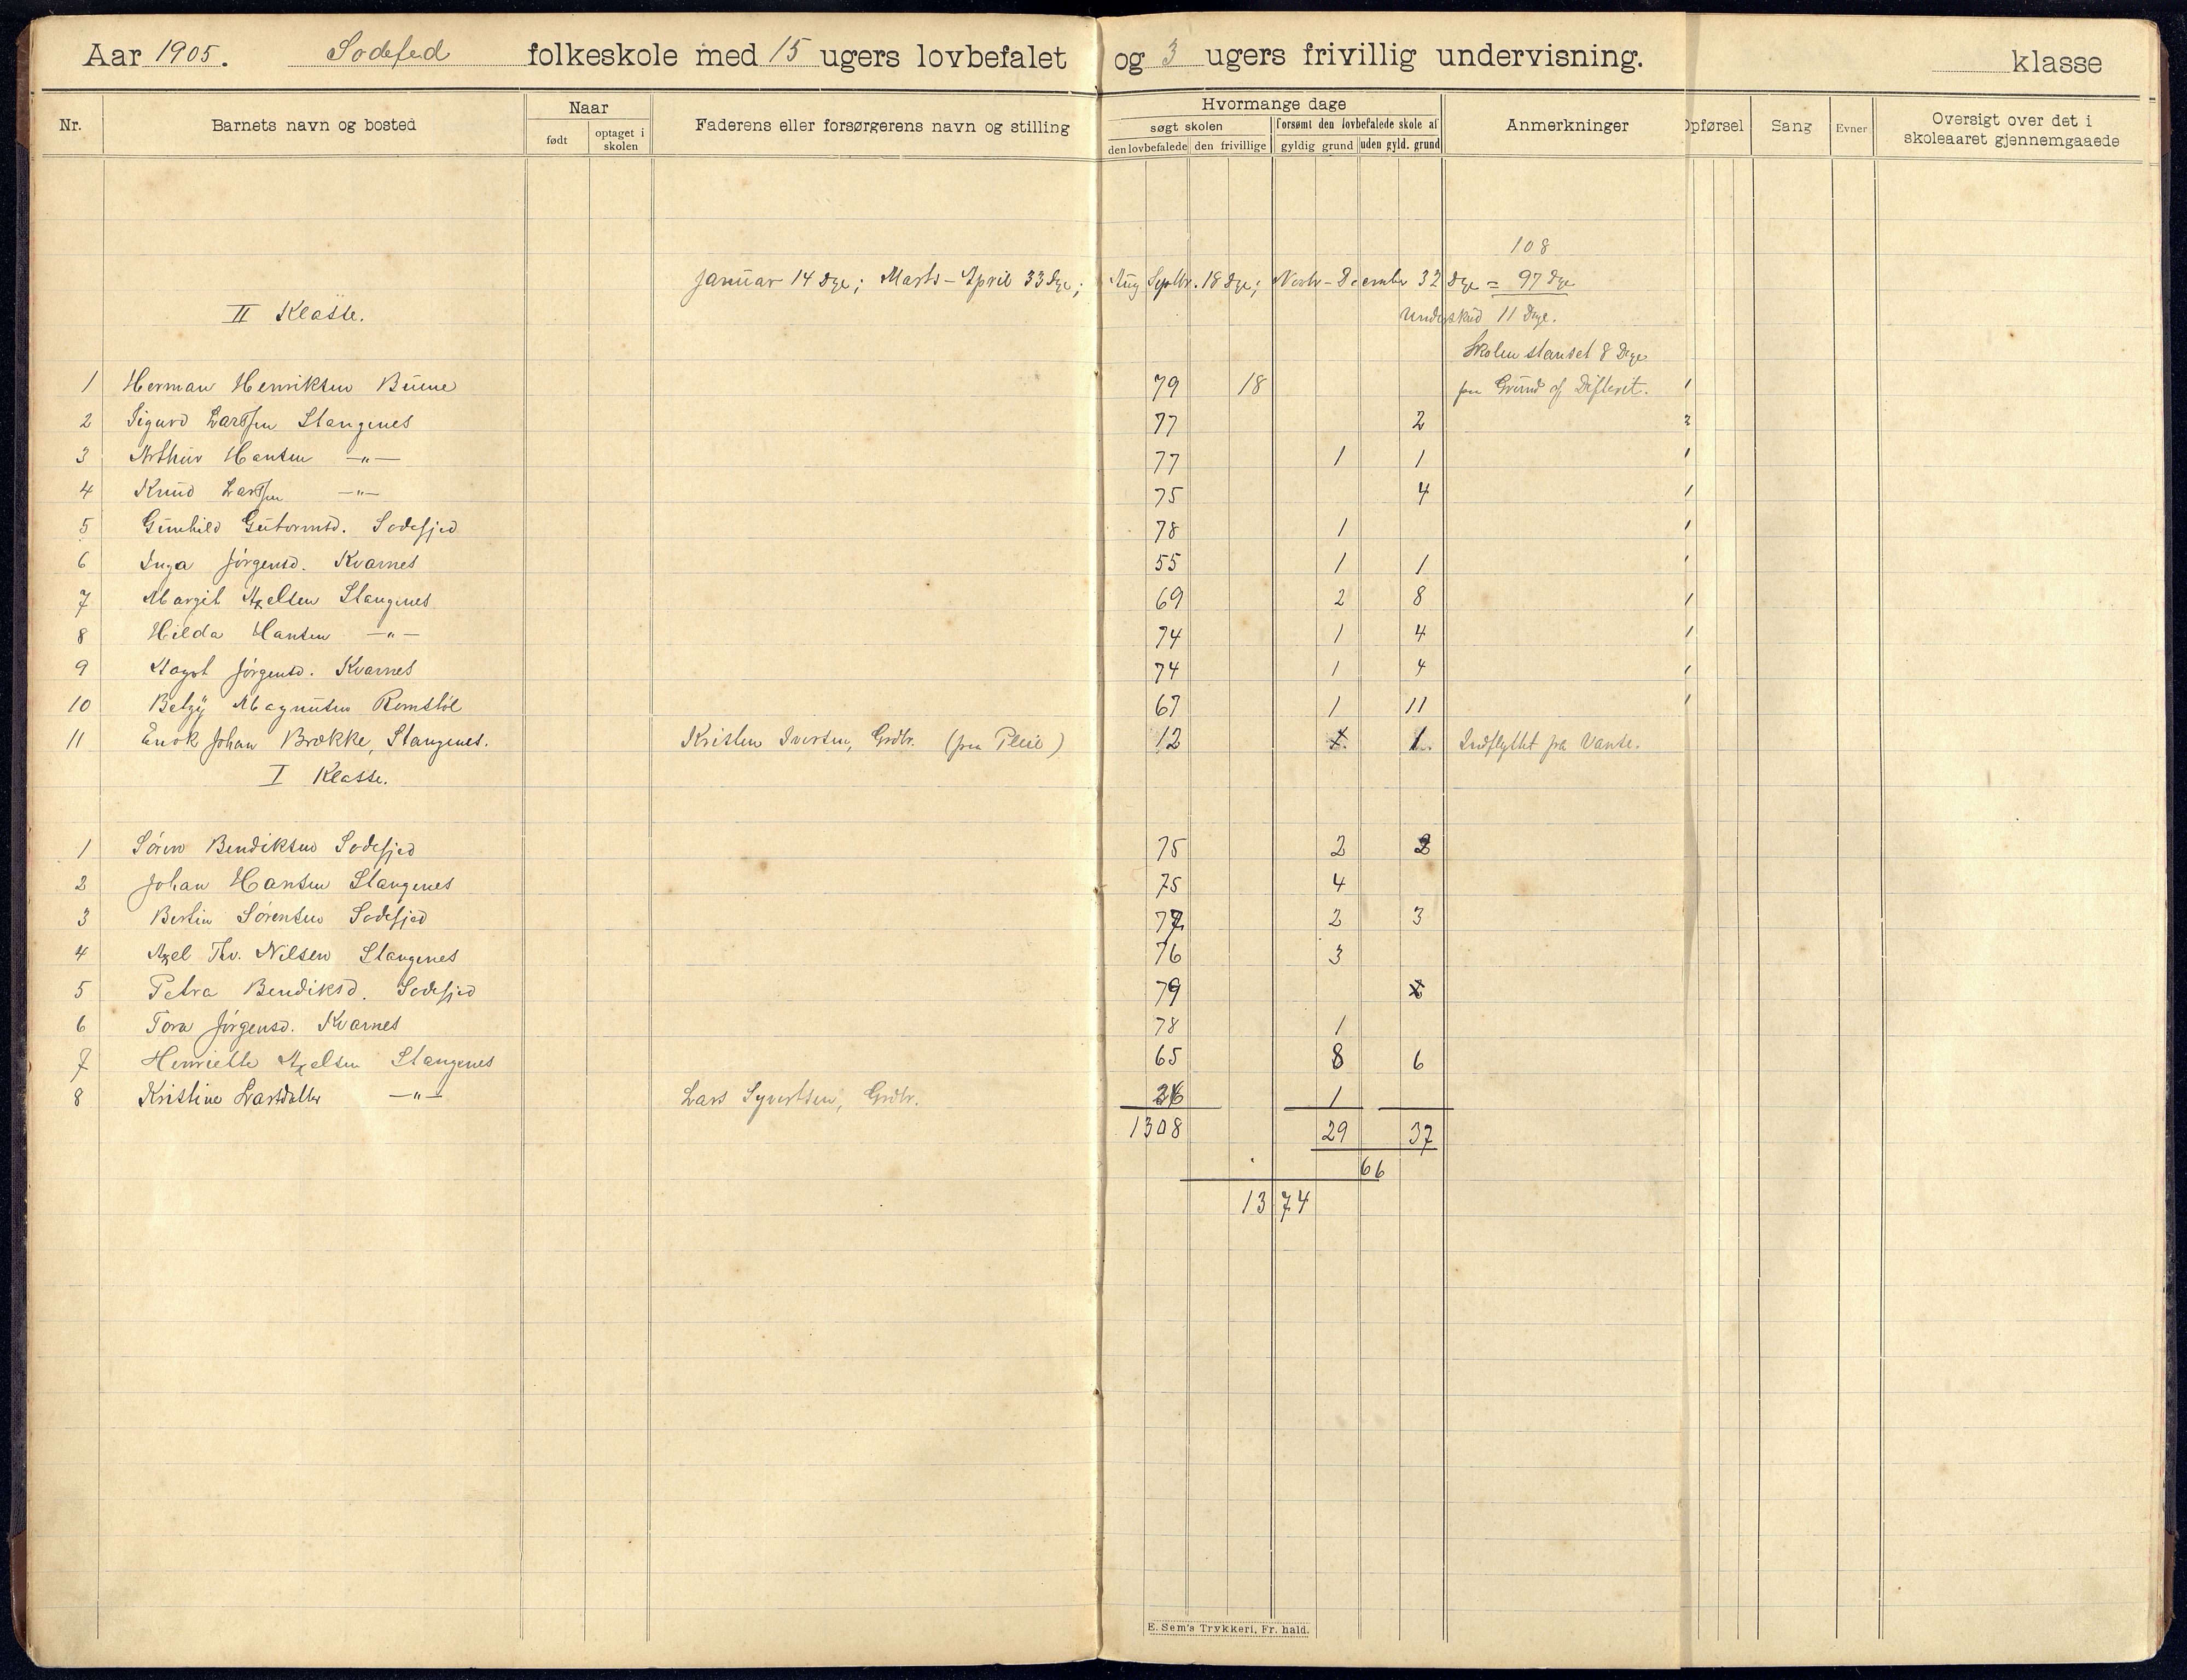 Aar 1905. Sodefed folkeskole med 15 ugers lovbefalet og 3 ugers frivillig undervisning. klasse
Nr. Barnets navn og bosted Naar Faderens eller forsørgerens navn og stilling Hvormange dage Anmerkninger Opførsel Sang Evner Oversigt over det i skoleaaret gjennemgaaede
født optaget i skolen søgt skolen forsømt den lovbefalede skole af
den lovbefalede den frivillige gyldig grund uden gyld. grund
108
Januar 14 Dge; Marts-April 33 Dge; Aug Septbr. 18 Dge; Novbr-December 32 Dge = 97 Dge
II Klasse. Underskud 11 Dge.
Skolen stanset 8 Dge
1 Herman Henriksen Buene 79 18 paa Grund af Difterit. 1
2 Sigurd Larssen Stangenes 77 2 2
3 Arthur Hansen —"— 77 1 1 1
4 Knud Larssen —"— 75 4 1
5 Gunhild Gutormsd. Sodefjed 78 1 1
6 Inga Jørgensd. Kvarnes 55 1 1 1
7 Margit Axelsen Stangenes 69 2 8 1
8 Hilda Hansen —"— 74 1 4 1
9 Aagot Jørgensd. Kvarnes 74 1 4 1
10 Betzy Magnusen Romstøl 67 1 11 1
11 Enok Johan Brække, Stangenes. Kristen Iversen, Grdbr. 12 1. Indflyttet fra Vanse.
I Klasse.
1 Søren Bendiksen Sodefjed 75 2 2
2 Johan Hansen Stangenes 75 4
3 Bertin Sørensen Sodefjed 77 2 3
4 Axel Thv. Nilsen Stangenes 76 3
5 Petra Bendiksd. Sodefjed 79
6 Tora Jørgensd. Kvarnes 78 1
7 Henriette Axelsen Stangenes 65 8 6
8 Kristine Larsdatter —"— Lars Syvertsen, Grdbr. 26 1
1308 29 37
66
1374
E. Sem's Trykkeri, Fr. hald.